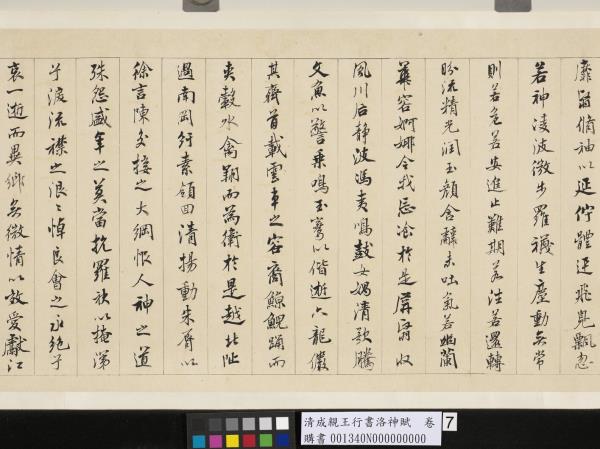 靡翳脩袖以延佇體迅飛鳧飄忽
若神淩波微步羅襪生塵動無常
則若危若安進止難期若往若還轉
盼流精光潤玉顏含辭未吐氣若幽蘭
華容婀娜令我忘飡於是屏翳收
風川后靜波馮夷鳴鼓女媧清歌騰
文魚以警乘鳴玉鸞以偕逝六龍儼
其齊首載雲車之容裔鯨鯢踊而
夾轂水禽翔而為衛於是越北沚
過南岡紆素領回清揚動朱脣以
徐言陳交接之大綱恨人神之道
殊怨盛年之莫當抗羅袂以掩涕
兮淚流襟之浪〻悼良會之永絕兮
哀一逝而異鄉無微情以效愛獻江
清成親王行書洛神賦 卷 7
購書 001340N000000000